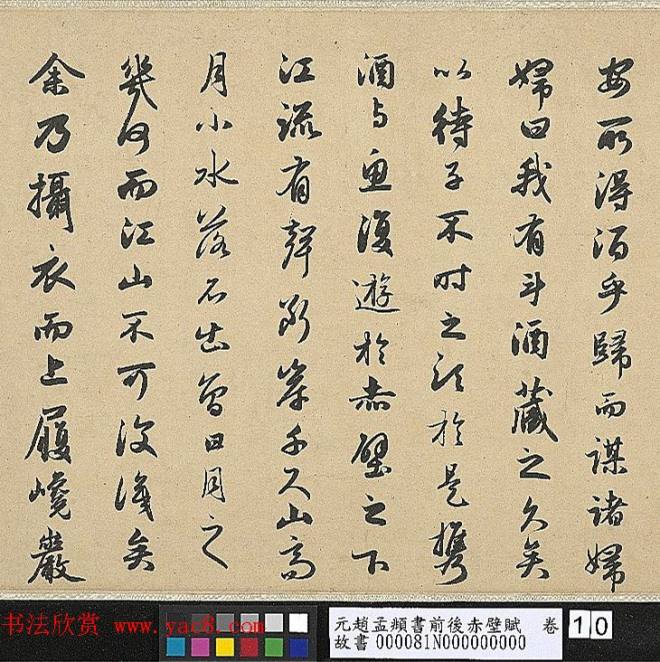 安所得酒乎歸而謀諸婦
婦曰我有斗酒藏之久矣
以待子不時之須於是攜
酒與魚復遊於赤壁之下
江流有聲斷岸千尺山高
月小水落石出曾日月之
幾何而江山不可復識矣
余乃攝衣而上履巉巖
书法欣赏 www.yac8.com
元趙孟頫書前後赤壁賦 卷 10
故書 000081N000000000